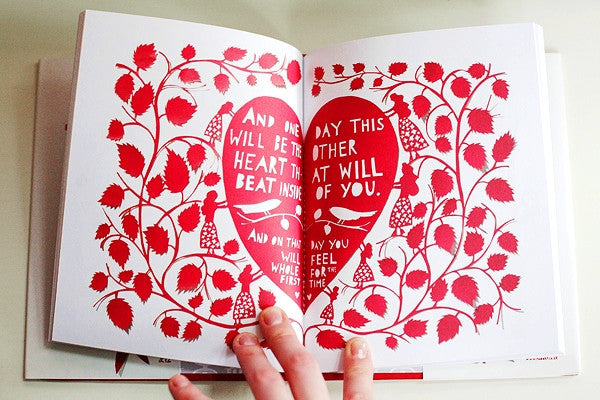 AND ONE DAY THIS
WILL BE THE OTHER
HEART THAT WILL
BEAT INSIDE OF YOU.
AND ON THAT DAY YOU
WILL FEEL
WHOLE FOR THE
FIRST TIME